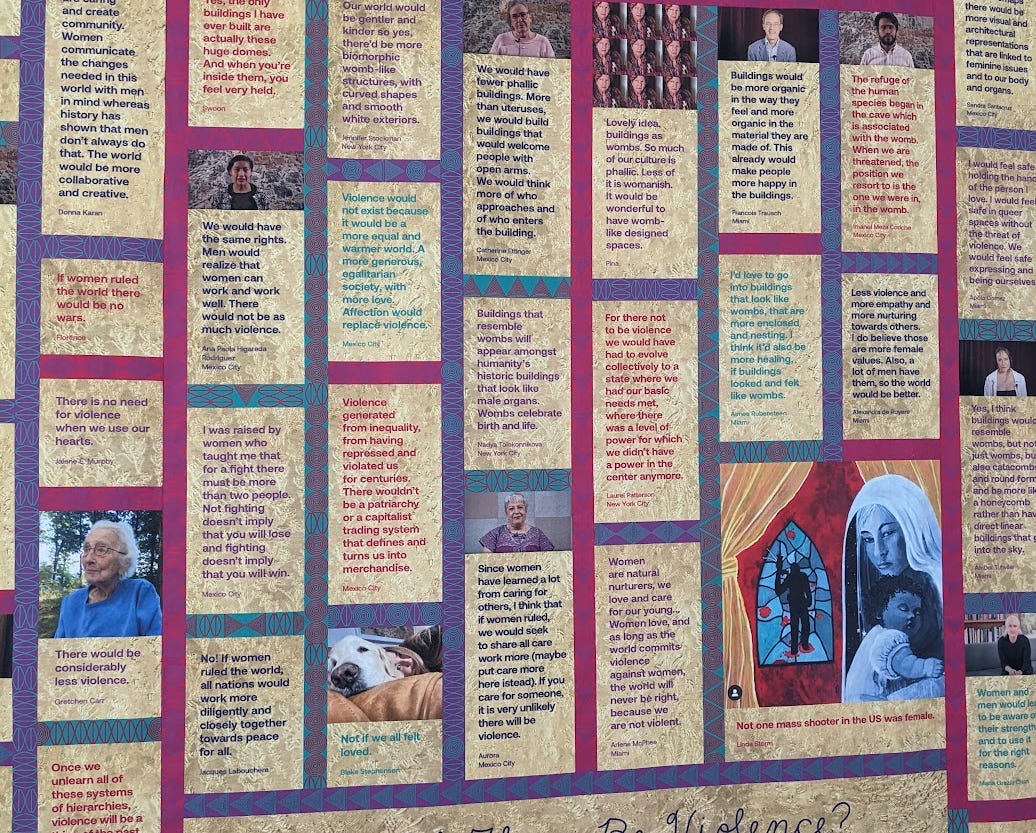 and create
community.
Women
communicate
the changes
needed in this
world with men
in mind whereas
history has
shown that men
don't always do
that. The world
would be more
collaborative
and creative.
Donna Karan
If women ruled
the world there
would be no
wars.
Florence
There is no need
for violence
when we use our
hearts.
Jalene E. Murphy
There would be
considerably
less violence.
Gretchen Carr
Once we
unlearn all of
these systems
of hierarchies,
violence will be a
Yes, the only
buildings I have
ever built are
actually these
huge domes.
And when you're
inside them, you
feel very held.
Swoon
We would have
the same rights.
Men would
realize that
women can
work and work
well. There
would not be as
much violence.
Ana Paola Higareda
Rodriguez
Mexico City
I was raised by
women who
taught me that
for a fight there
must be more
than two people.
Not fighting
doesn't imply
that you will lose
and fighting
doesn't imply
that you will win.
Mexico City
No! If women
ruled the world,
all nations would
work more
diligently and
closely together
towards peace
for all.
Jacques Labouchere
Our world would
be gentler and
kinder so yes,
there'd be more
biomorphic
womb-like
structures, with
curved shapes
and smooth
white exteriors.
Jennifer Stockman
New York City
Violence would
not exist because
it would be a
more equal and
warmer world. A
more generous,
egalitarian
society, with
more love.
Affection would
replace violence.
Mexico City
Violence
generated
from inequality,
from having
repressed and
violated us
for centuries.
There wouldn't
be a patriarchy
or a capitalist
trading system
that defines and
turns us into
merchandise.
Mexico City
Not if we all felt
loved.
Blake Stephenson
We would have
fewer phallic
buildings. More
than uteruses,
we would build
buildings that
would welcome
people with
open arms.
We would think
more of who
approaches and
of who enters
the building.
Catherine Ettinger
Mexico City
Buildings that
resemble
wombs will
appear amongst
humanity's
historic buildings
that look like
male organs.
Wombs celebrate
birth and life.
Nadya Tolokonnikova
New York City
Since women
have learned a lot
from caring for
others, I think that
if women ruled,
we would seek
to share all care
work more (maybe
put care more
here istead). If you
care for someone,
it is very unlikely
there will be
violence.
Aurora
Mexico City
'Lovely idea,
buildings as
wombs. So much
of our culture is
phallic. Less of
it is womanish.
It would be
wonderful to
have womb-
like designed
spaces.
Pina
For there not
to be violence
we would have
had to evolve
collectively to a
state where we
had our basic
needs met,
where there
was a level of
power for which
we didn't have
a power in the
center anymore.
Laurel Patterson
New York City
Women
are natural
nurturers, we
love and care
for our young...
Women love, and
as long as the
world commits
violence
against women,
the world will
never be right,
because we
are not violent.
Arlene McPhee
Miami
Buildings would
be more organic
in the way they
feel and more
organic in the
material they are
made of. This
already would
make people
more happy in
the buildings.
Francois Trausch
Miami
I'd love to go
into buildings
that look like
wombs, that are
more enclosed
and nesting. I
think it'd also be
more healing,
if buildings
looked and felt
like wombs.
Agnes Rubensteen
Miami
The refuge of
the human
species began in
the cave which
is associated
with the womb.
When we are
threatened, the
position we
resort to is the
one we were in,
in the womb.
Imanol Meza
Mexico City
Less violence and
more empathy and
more nurturing
towards others.
I do believe those
are more female
values. Also, a
lot of men have
them, so the world
would be better.
Alexandra de Royere
Miami
Not one mass shooter in the US was female.
Linda Storm
there would be
more visual and
architectural
representations
that are linked to
feminine issues
and to our body
and organs.
Sandra
Mexico City
I would feel safe
holding the hand
of the person I
love. I would feel
safe in queer
spaces without
the threat of
violence. We
would feel safe
expressing and
being ourselves
Gomez
Miami
Yes, I think
buildings would
resemble
wombs, but not
just wombs, but
also catacomb
and round form
and be more li
a honeycomb
rather than hav
direct linear
buildings that g
into the sky.
Miami
Women and
men would lea
to be aware
their strength
and to use it
for the right
reasons.
Be Violence?